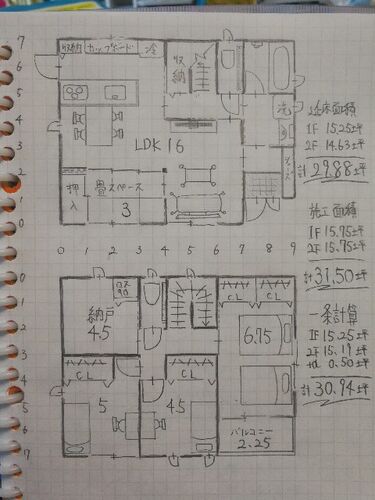 7
6
5
4
3
2
1
0
収納
カップボード
冷
収納
洗
LDK 16
押入
畳スペース
3
0 1 2 3 4 5 6 7 8 9
延床面積
1F 15.25坪
2F 14.63坪
計 29.88坪
施工面積
1F 15.75坪
2F 15.75坪
計 31.50坪
一条計算
1F 15.25坪
2F 15.19坪
0.50坪
計 30.94坪
0
1
2
3
4
5
6
7
納戸
4.5
CL
CL
6.75
CL
CL
5
4.5
バルコニー
2.25